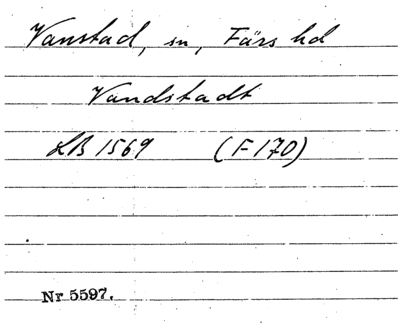 Vanstad, sn, Färs hd
Vandstadt
LB 1569 (F 170)
Nr 5597.